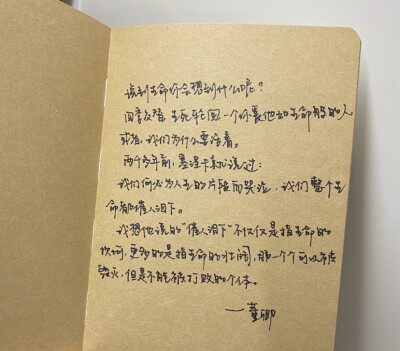 谈到生命你会想到什么呢?
四季交替,生死轮回,一个你爱他如生命般的人
或者,我们为什么要活着。
两千多年前,塞涅卡就说过:
我们何必为人生的片段而哭泣,我们整个生
命都催人泪下。
我想他说的“催人泪下”不仅仅是指生命的
坎坷,更多的是指生命的壮阔,那一个个可以被
毁灭,但是不能被打败的个体。
—董卿